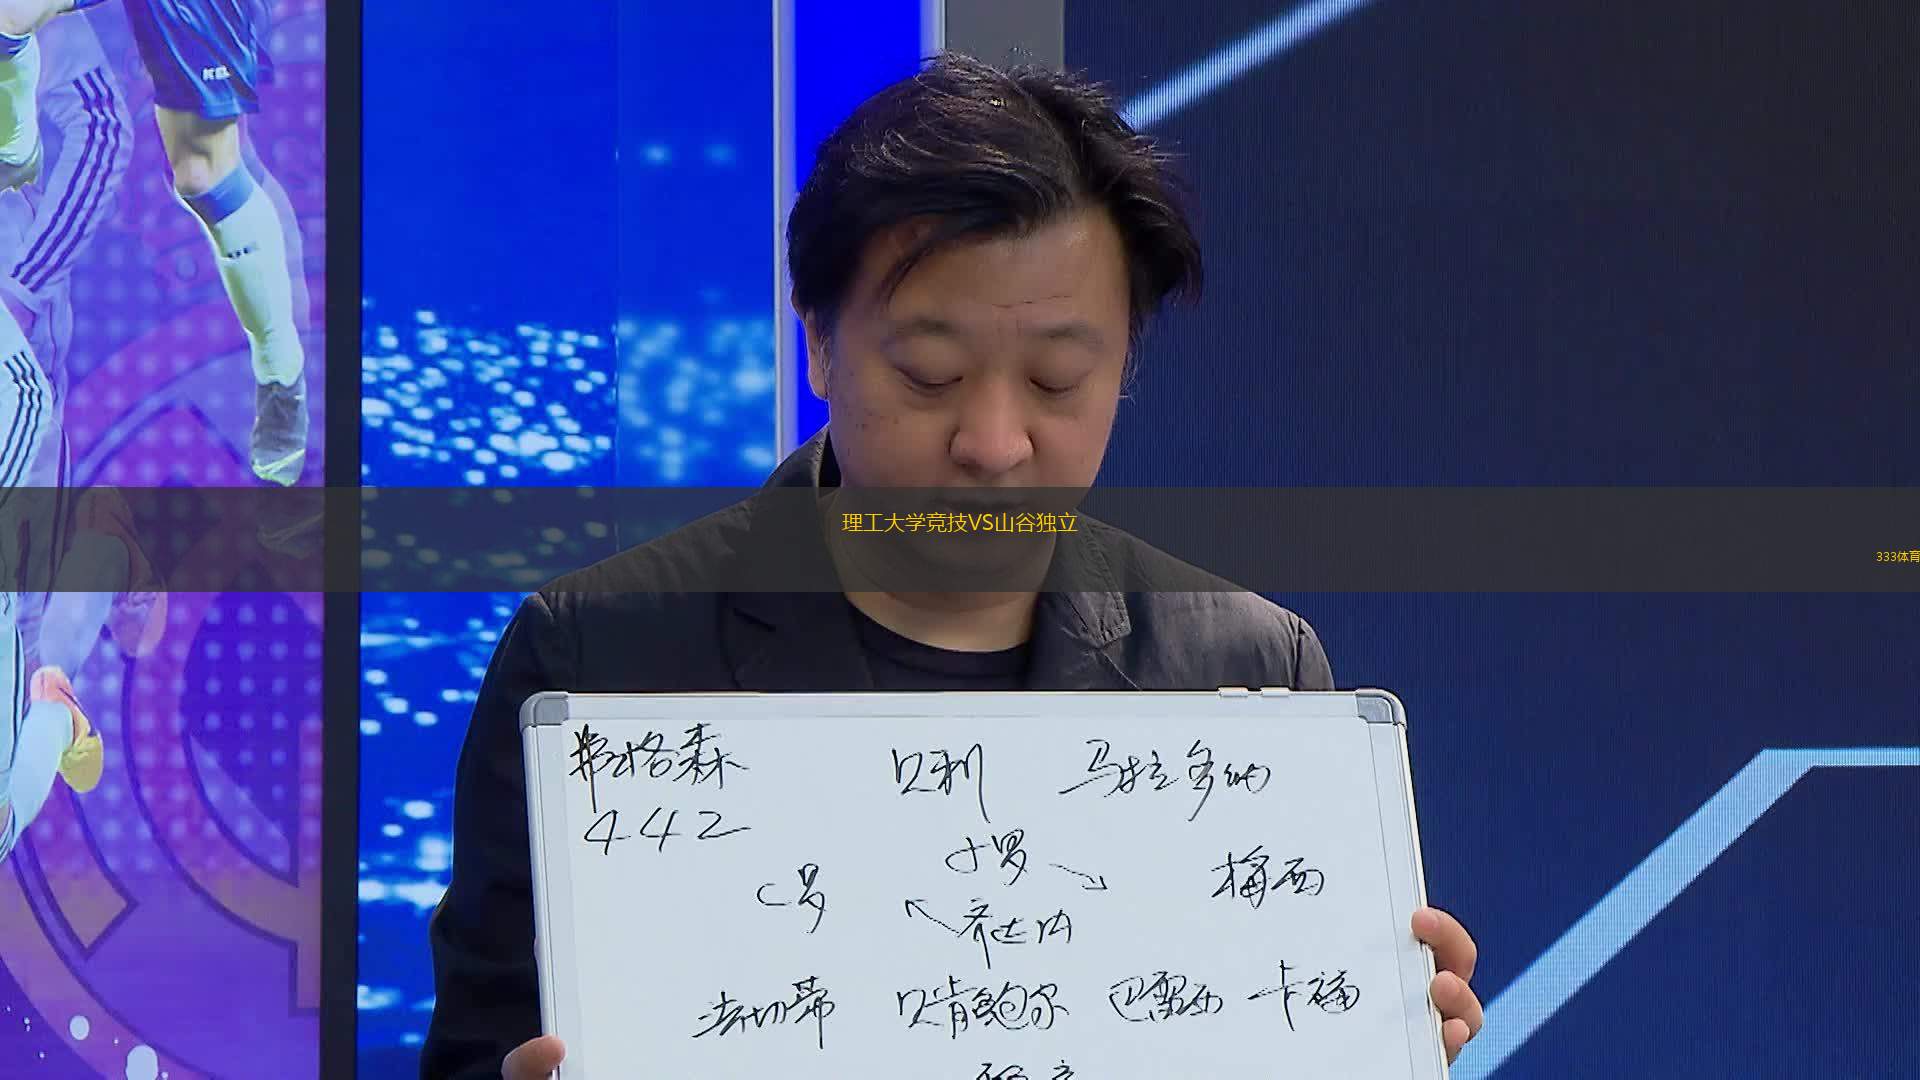 理工大学竞技VS山谷独立
333体育
弗格森 贝利 马拉多纳
442
小罗
C罗 梅西
齐达内
法切蒂 贝肯鲍尔 巴雷西 卡福